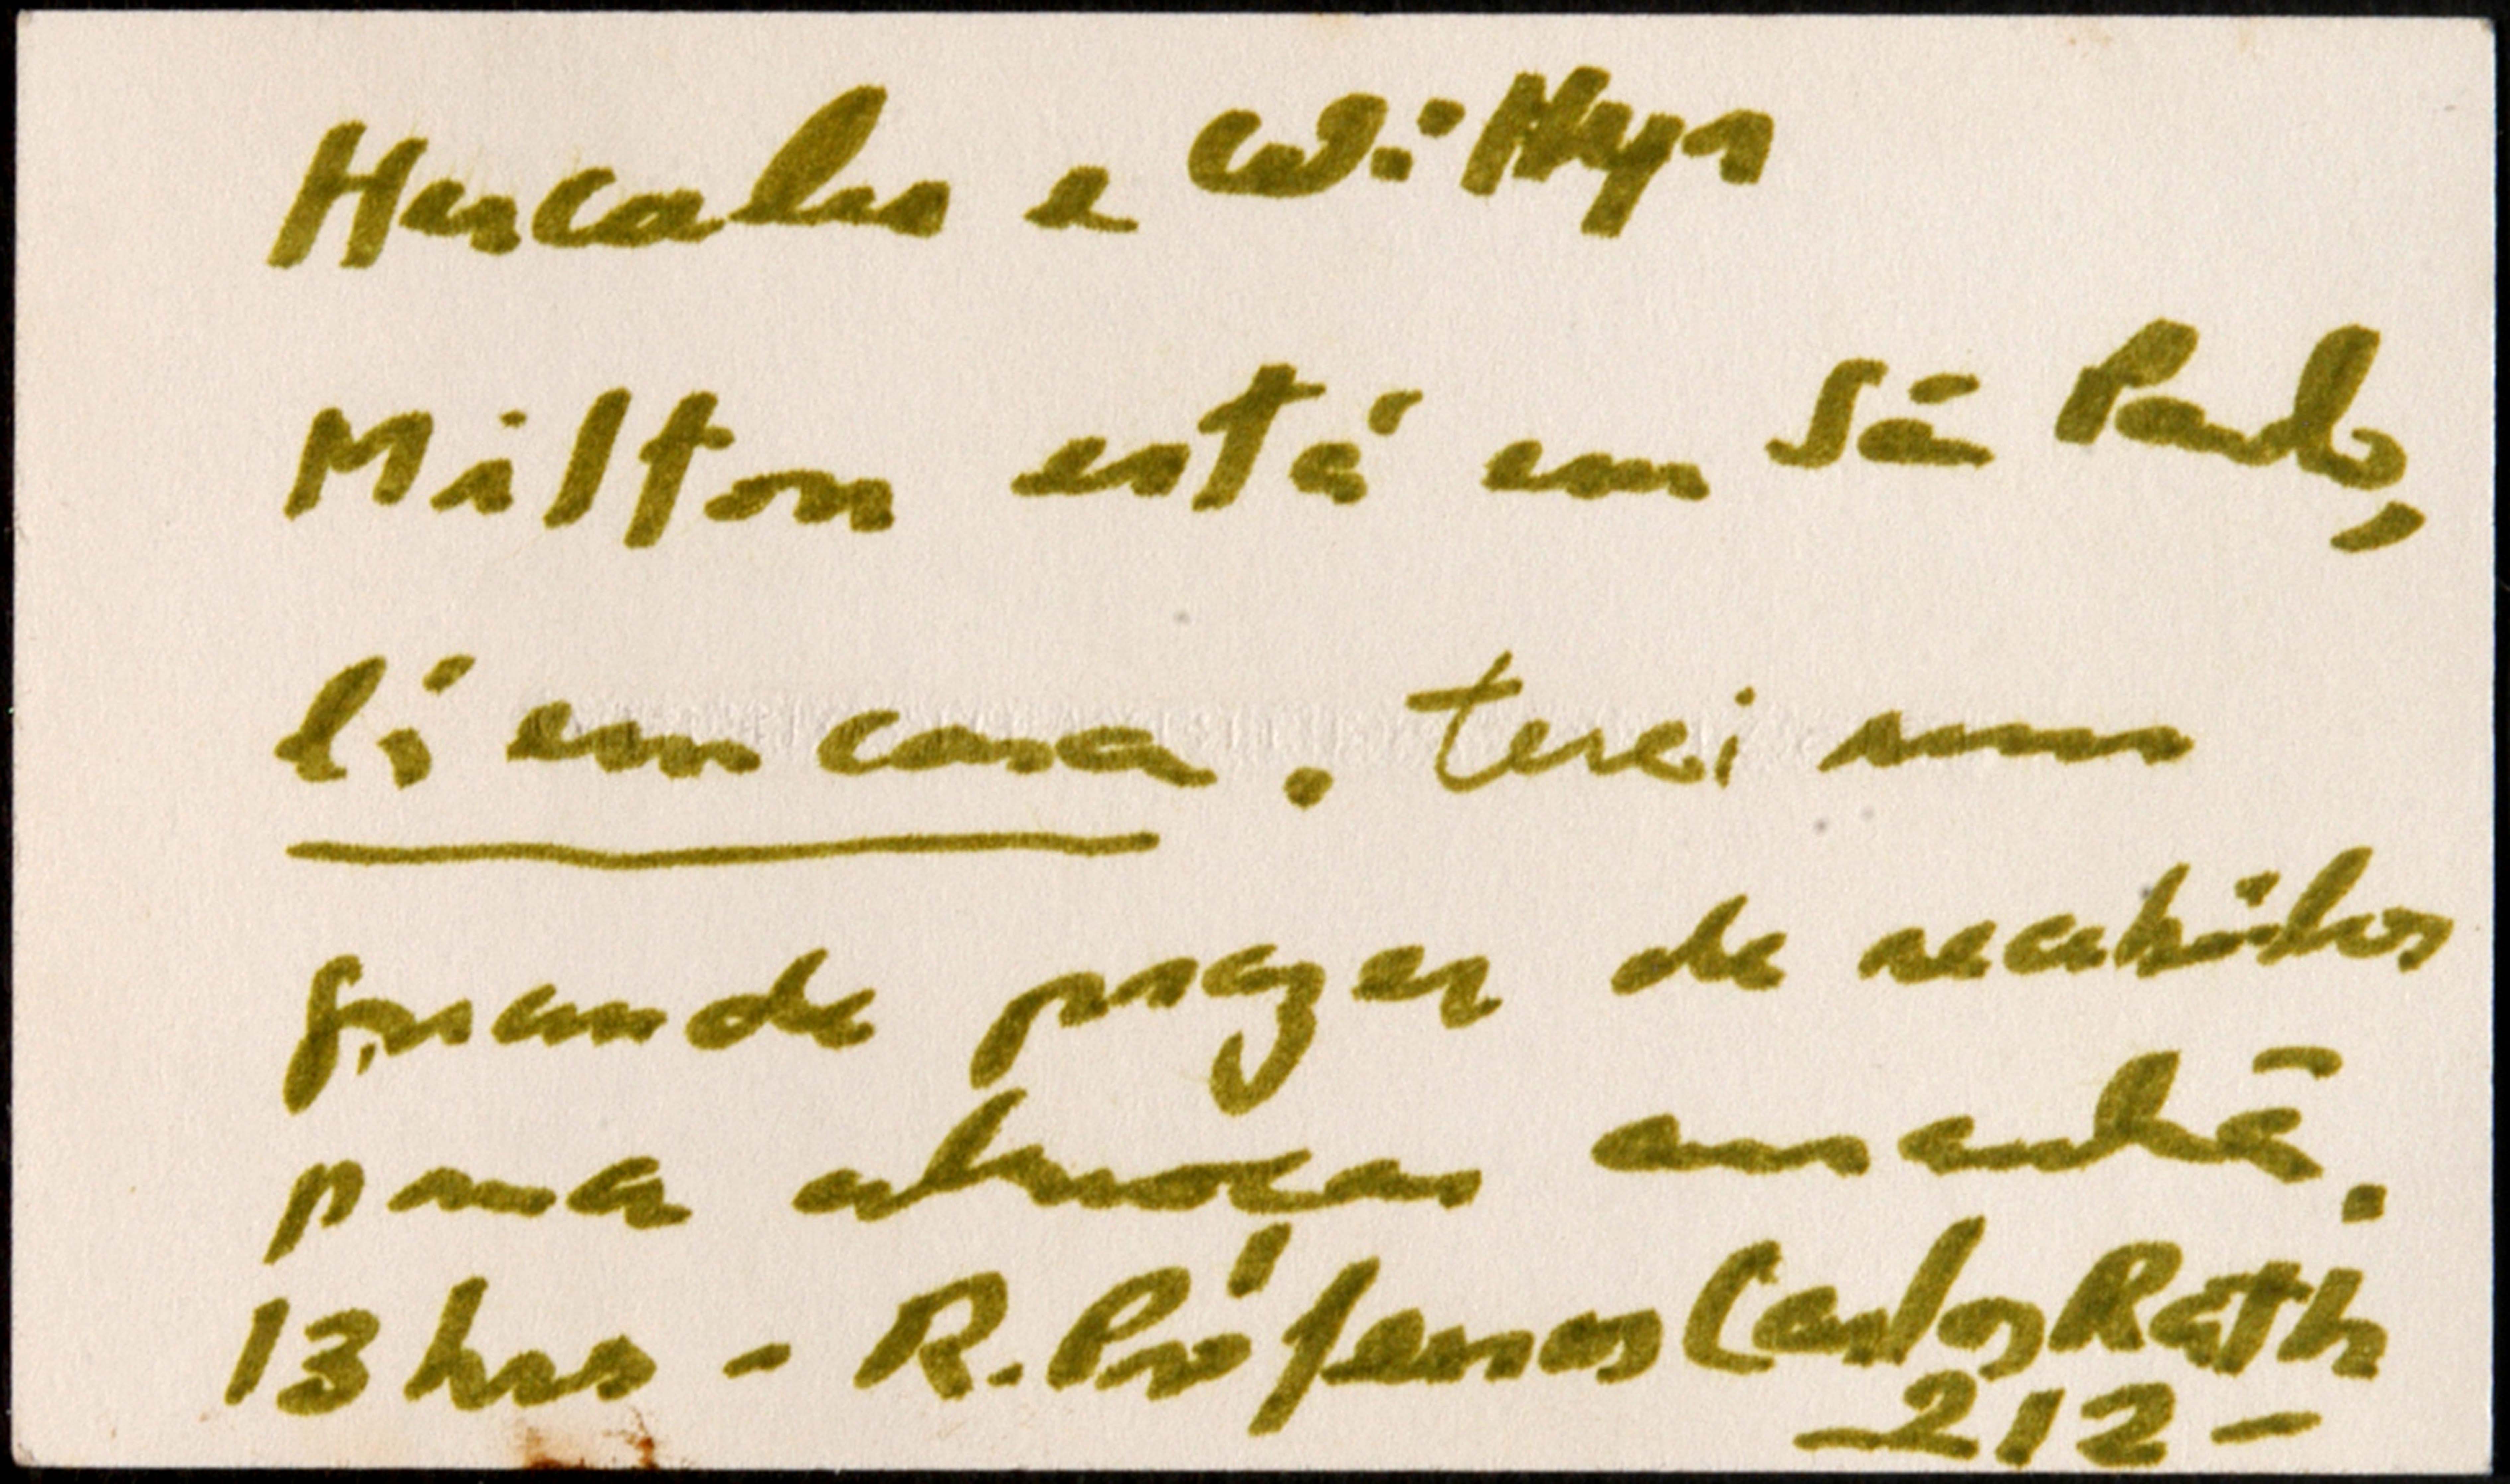 Hercules e Willys
Milton está em São Paulo,
lá em casa. terei um
grande prazer de recebê-los
para almoçar amanhã.
13 hrs - R. Professor Carlos Rath
212 -